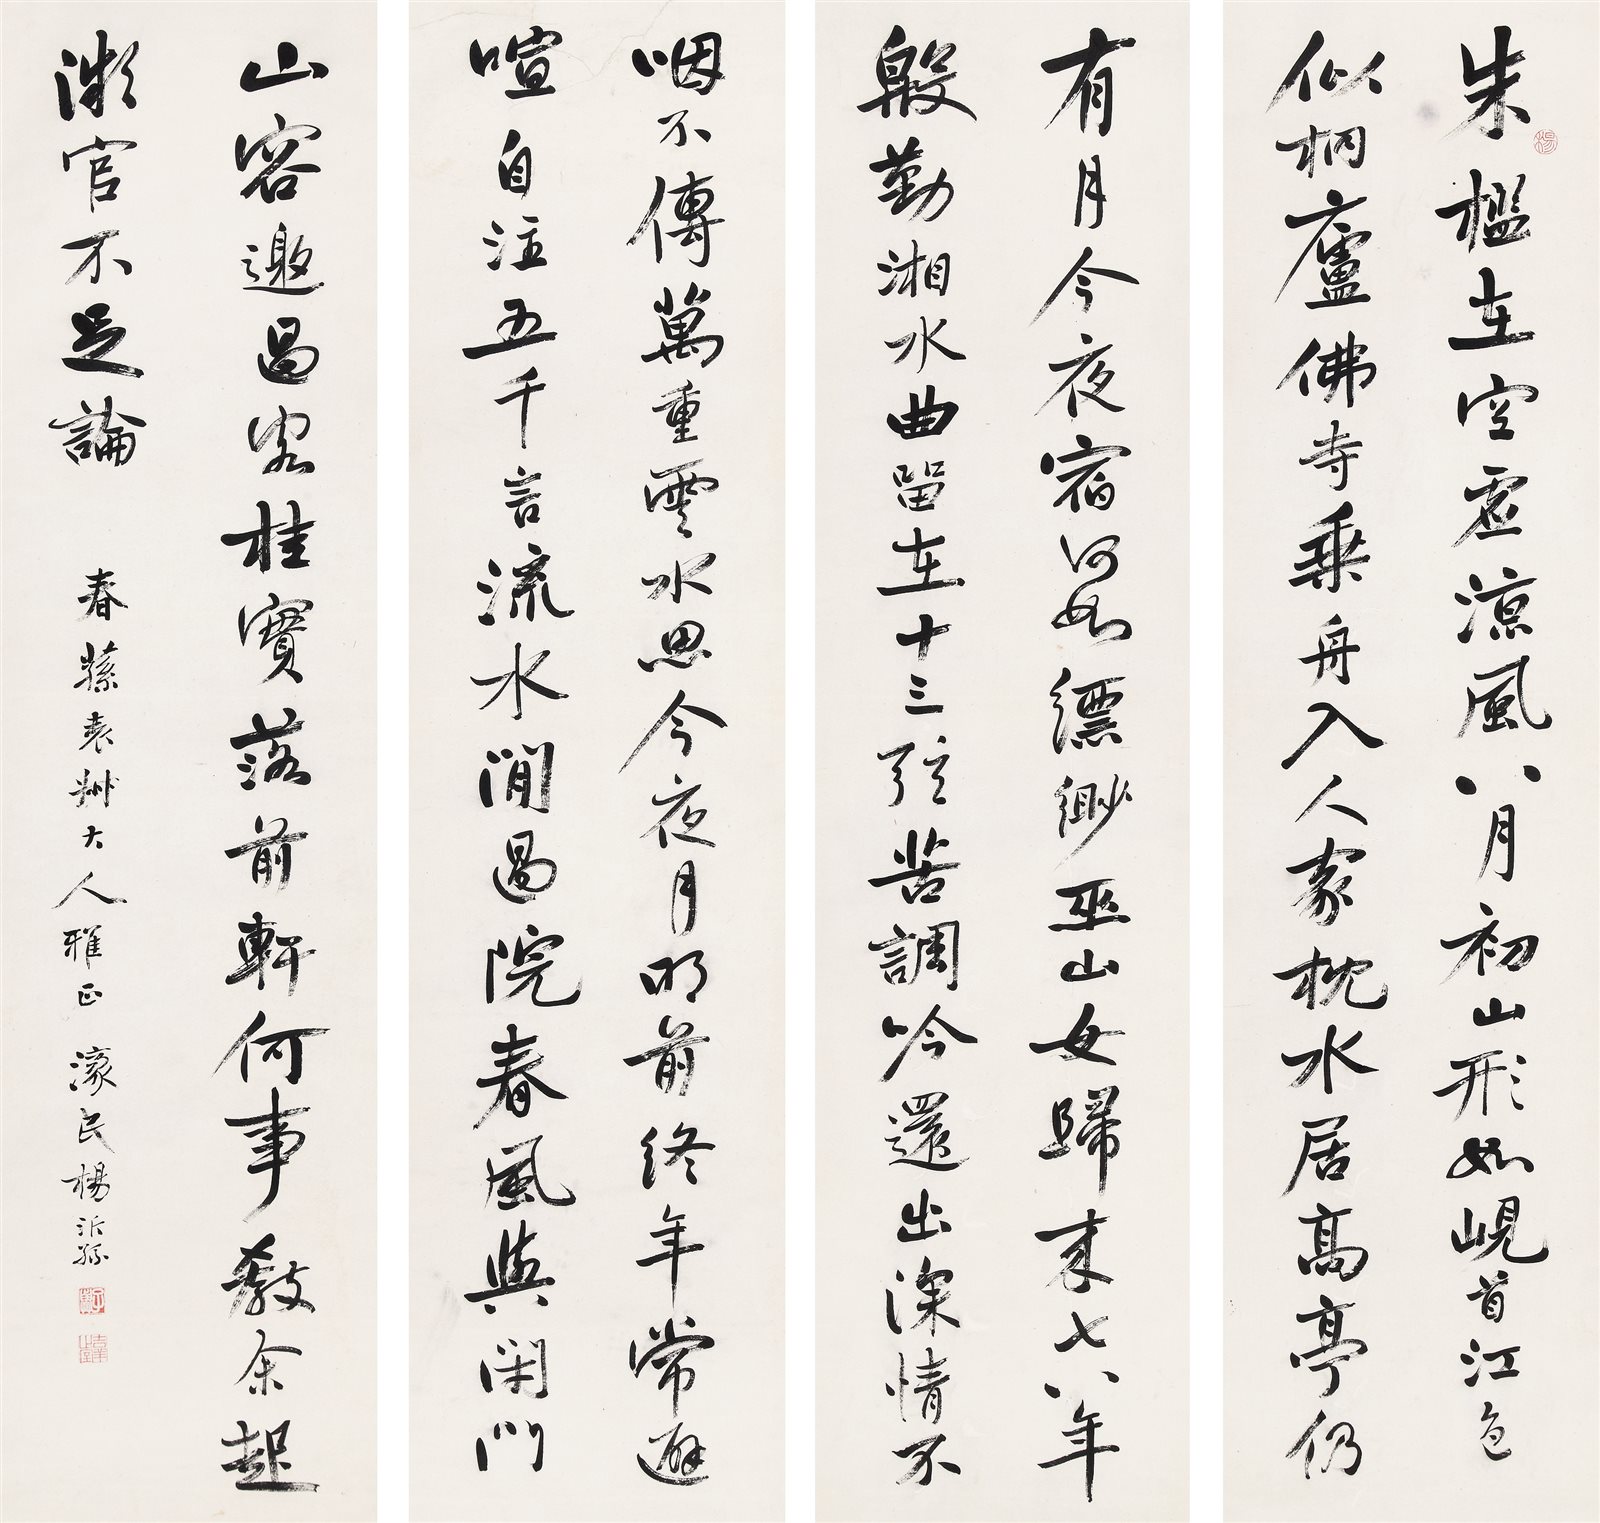 朱檻在空虛涼風八月初山形如峴首江色
似桐廬佛寺乘舟入人家枕水居高亭仍
有月今夜宿何如縹緲巫山女歸來七八年
殷勤湘水曲留在十三弦苦調吟還出深情不
咽不傳萬重雲水思今夜月明前終年常避
喧自注五千言流水閒過院春風與閉門
山容邀過客桂實落前軒何事教余起
微官不足論
春蓀大人雅正 濠民楊沂孫